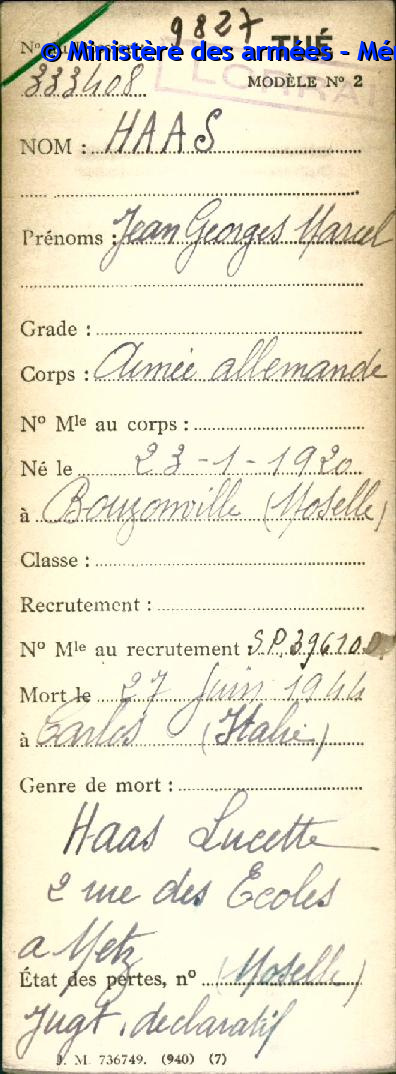 9827
TUÉ
© Ministère des armées - Mé
333408
LORRAI
MODÈLE Nº 2
NOM : HAAS
Prénoms : Jean Georges Marcel
Grade :
Corps : Armée allemande
Nº Mle au corps :
Né le 23-1-1920
à Bouzonville (Moselle)
Classe :
Recrutement :
Nº Mle au recrutement : S.P. 39610
Mort le 27 Juin 1944
à Carlos (Italie)
Genre de mort :
Haas Lucette
2 rue des Ecoles
a Metz
État des pertes, nº (Moselle)
Jugt. declaratif
J. M. 736749. (940) (7)